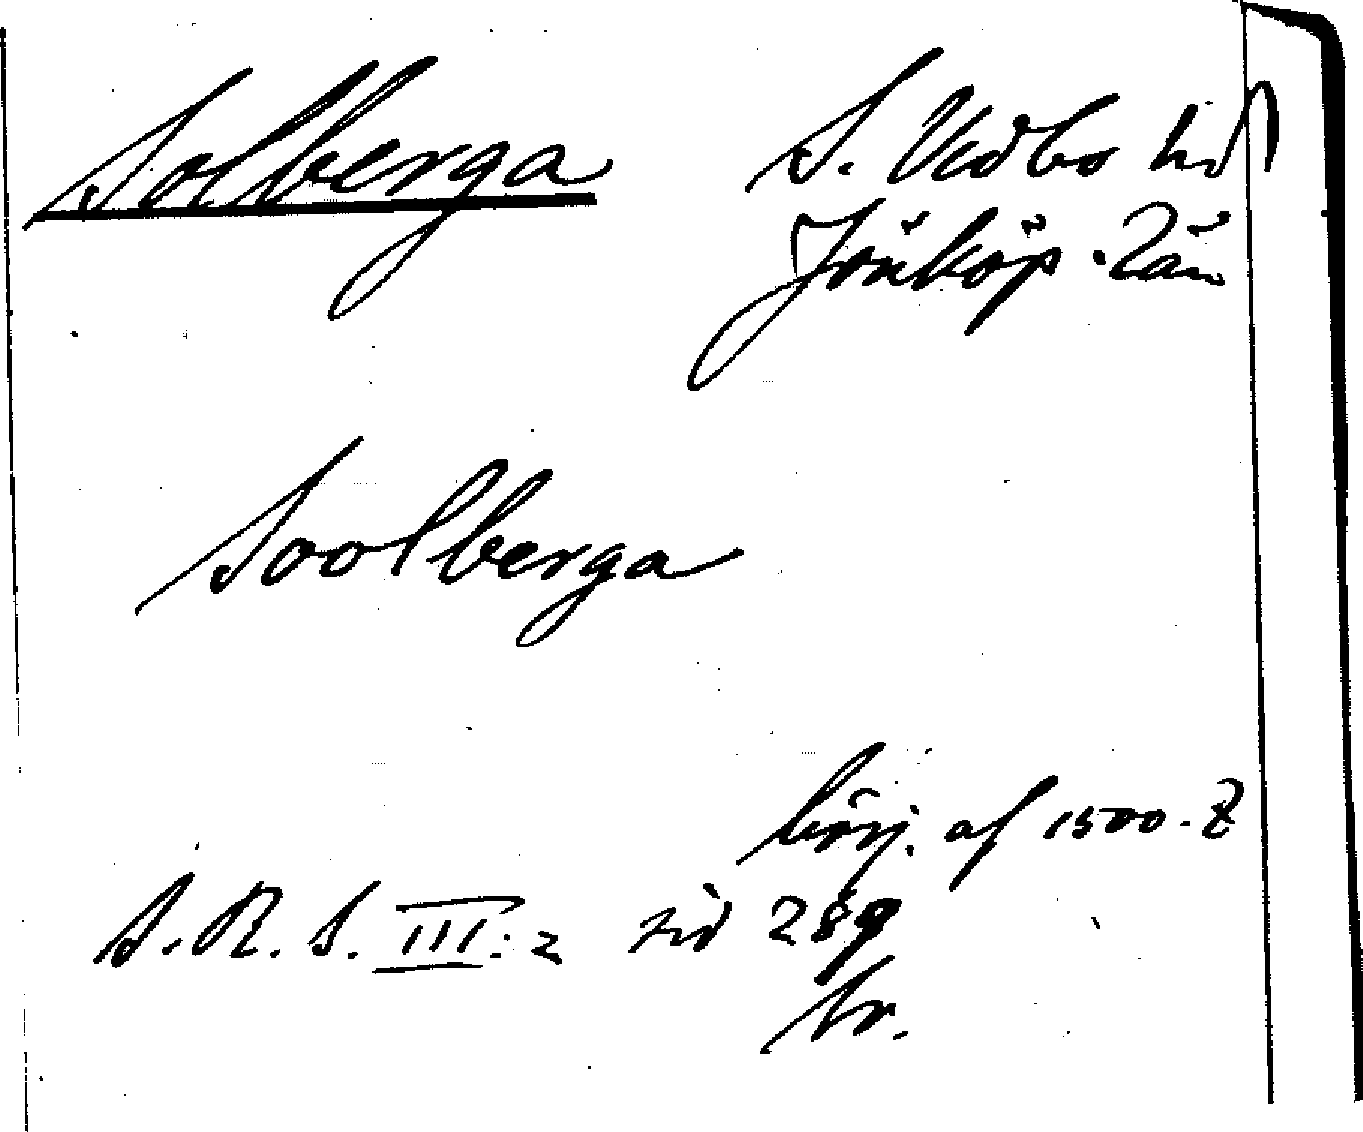 Solberga S. Vedbo hd
Jönköp. län
Soolberga
börj. af 1500-t
S.R.S. III:2 sid 289
tr.